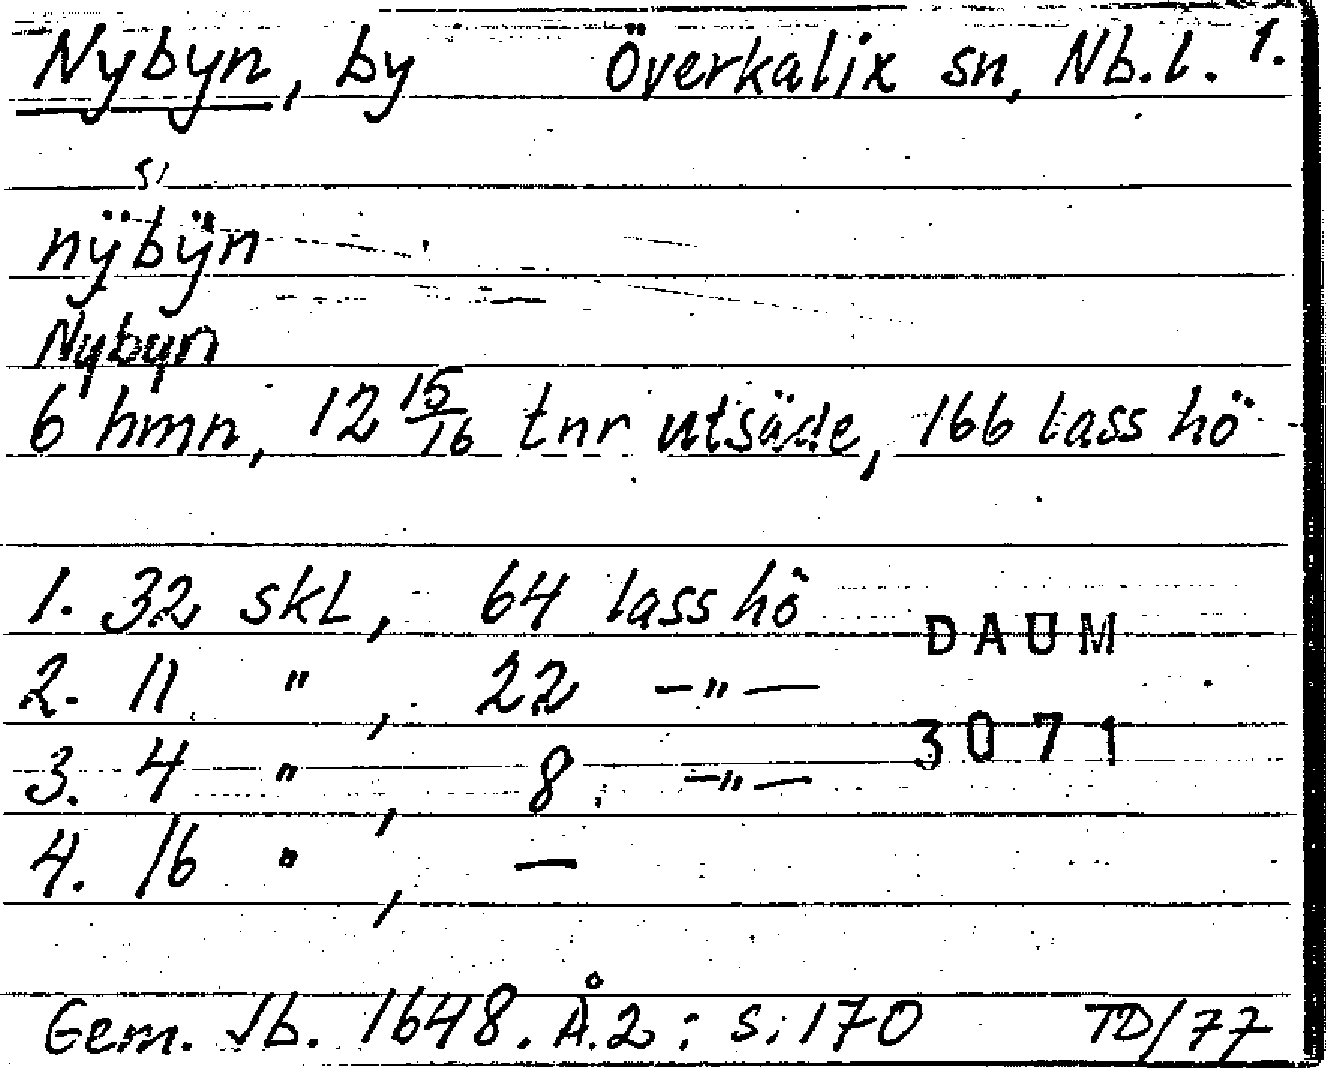 Nybyn, by Överkalix sn, Nb.l. 1.
nÿbÿn
Nybyn
6 hmn, 12 15/16 tnr utsäde, 166 lass hö
1. 32 skl, 64 lass hö
DAUM
2. 11 " , 22 —"—
3071
3. 4 " , 8 —"—
4. 16 " , —
Gem. Jb. 1648. Å.2: s. 170 TD/77